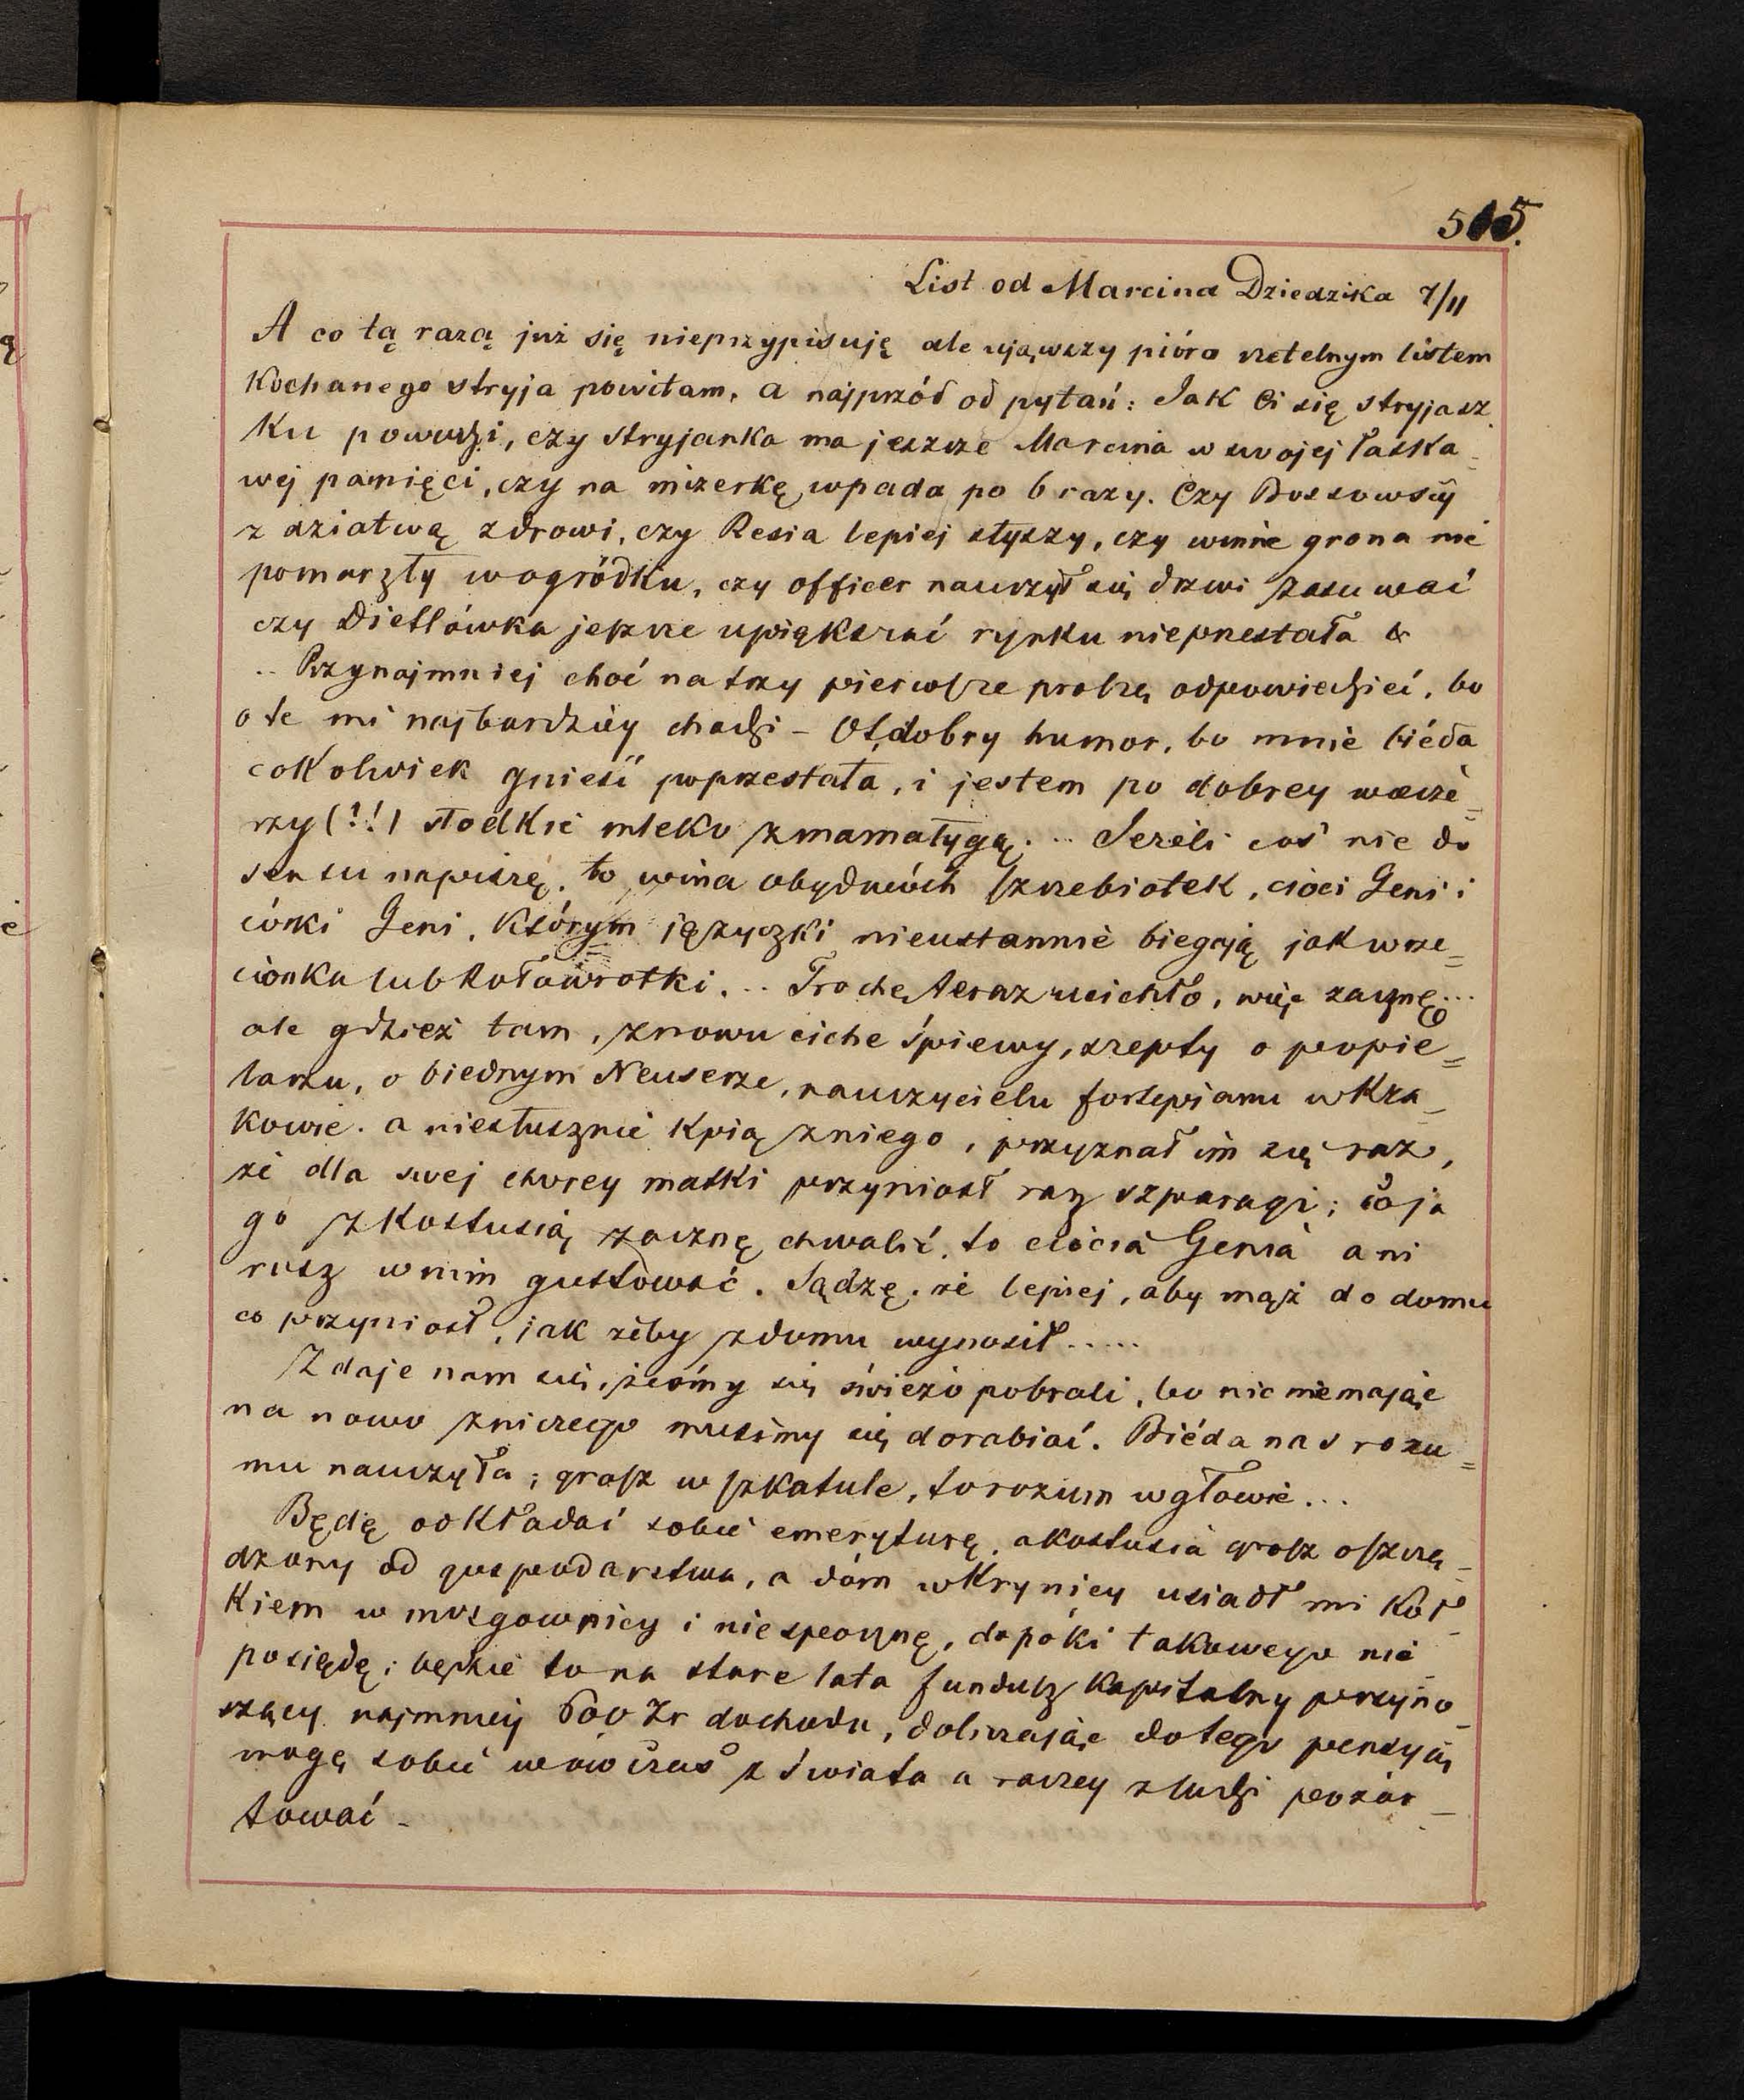 515.
List od Marcina Dziedzika 7/11
A co tą razą już się nieprzypisuję ale ująwszy pióro rzetelnym listem
Kochanego stryja powitam, a najprzód od pytań: Jak Ci się stryjasz
ku powodzi, czy stryjanka ma jeszcze Marcina w swojej łaska-
wej pamięci, czy na mizerkę wpada po 6 razy. Czy Bossowscy
z dziatwą zdrowi, czy Resia lepiej słyszy, czy winne grona nie
pomarzły w ogródku, czy officer nauczył się drzwi zasuwać
czy Dietlówka jeszcze upiększać rynku nieprzestała &
.. Przynajmniej choć na trzy pierwsze proszę odpowiedzieć, bo
o te mi najbardziéy chodzi – Ot, dobry humor, bo mnie biéda
cokolwiek gnieść poprzestała, i jestem po dobrey wiecze=
rzy (!!) słodkie mleko z mamałygą. .. Jeżeli coś nie do
sensu napiszę, to wina obydwóch szczebiotek, cioci Geni i
córki Geni, którym języczki nieustannie biegają jak wrze=
cionka lub kołowrotki. .. Trochę teraz ucichło, więc zacznę...
ale gdzież tam, znowu ciche śpiewy, szepty o popie=
larzu, o biednym Neuserze, nauczycielu fortepianu w Kra-
kowie. a niesłusznie kpią z niego, przyznał im się raz,
że dla swej chorey matki przyniosł raz szparagi; co ja
go z Kostusią zacznę chwalić, to ciocia Genia ani
rusz w nim gustować. Sądzę, że lepiej, aby mąż do domu
co przyniosł, jak żeby z domu wynosił.....
Zdaje nam się, żeśmy się świeżo pobrali, bo nic niemając
na nowo z niczego musimy się dorabiać. Biéda nas rozu=
mu nauczyła; grosz w szkatule, to rozum w głowie...
Będę odkładać sobie emeryturę, a Kostusia grosz oszczę-
dzony od gospodarstwa, a dóm w Krynicy usiadł mi koł-
kiem w mózgownicy i niespocznę, dopóki takowego nie
posiędę; będzie to na stare lata fundusz kapitalny przyno-
szący najmniej 600 Zr dochodu, doliczając do tego pensyję
mogę sobie wówczas z świata a raczey z ludzi pożar-
tować –